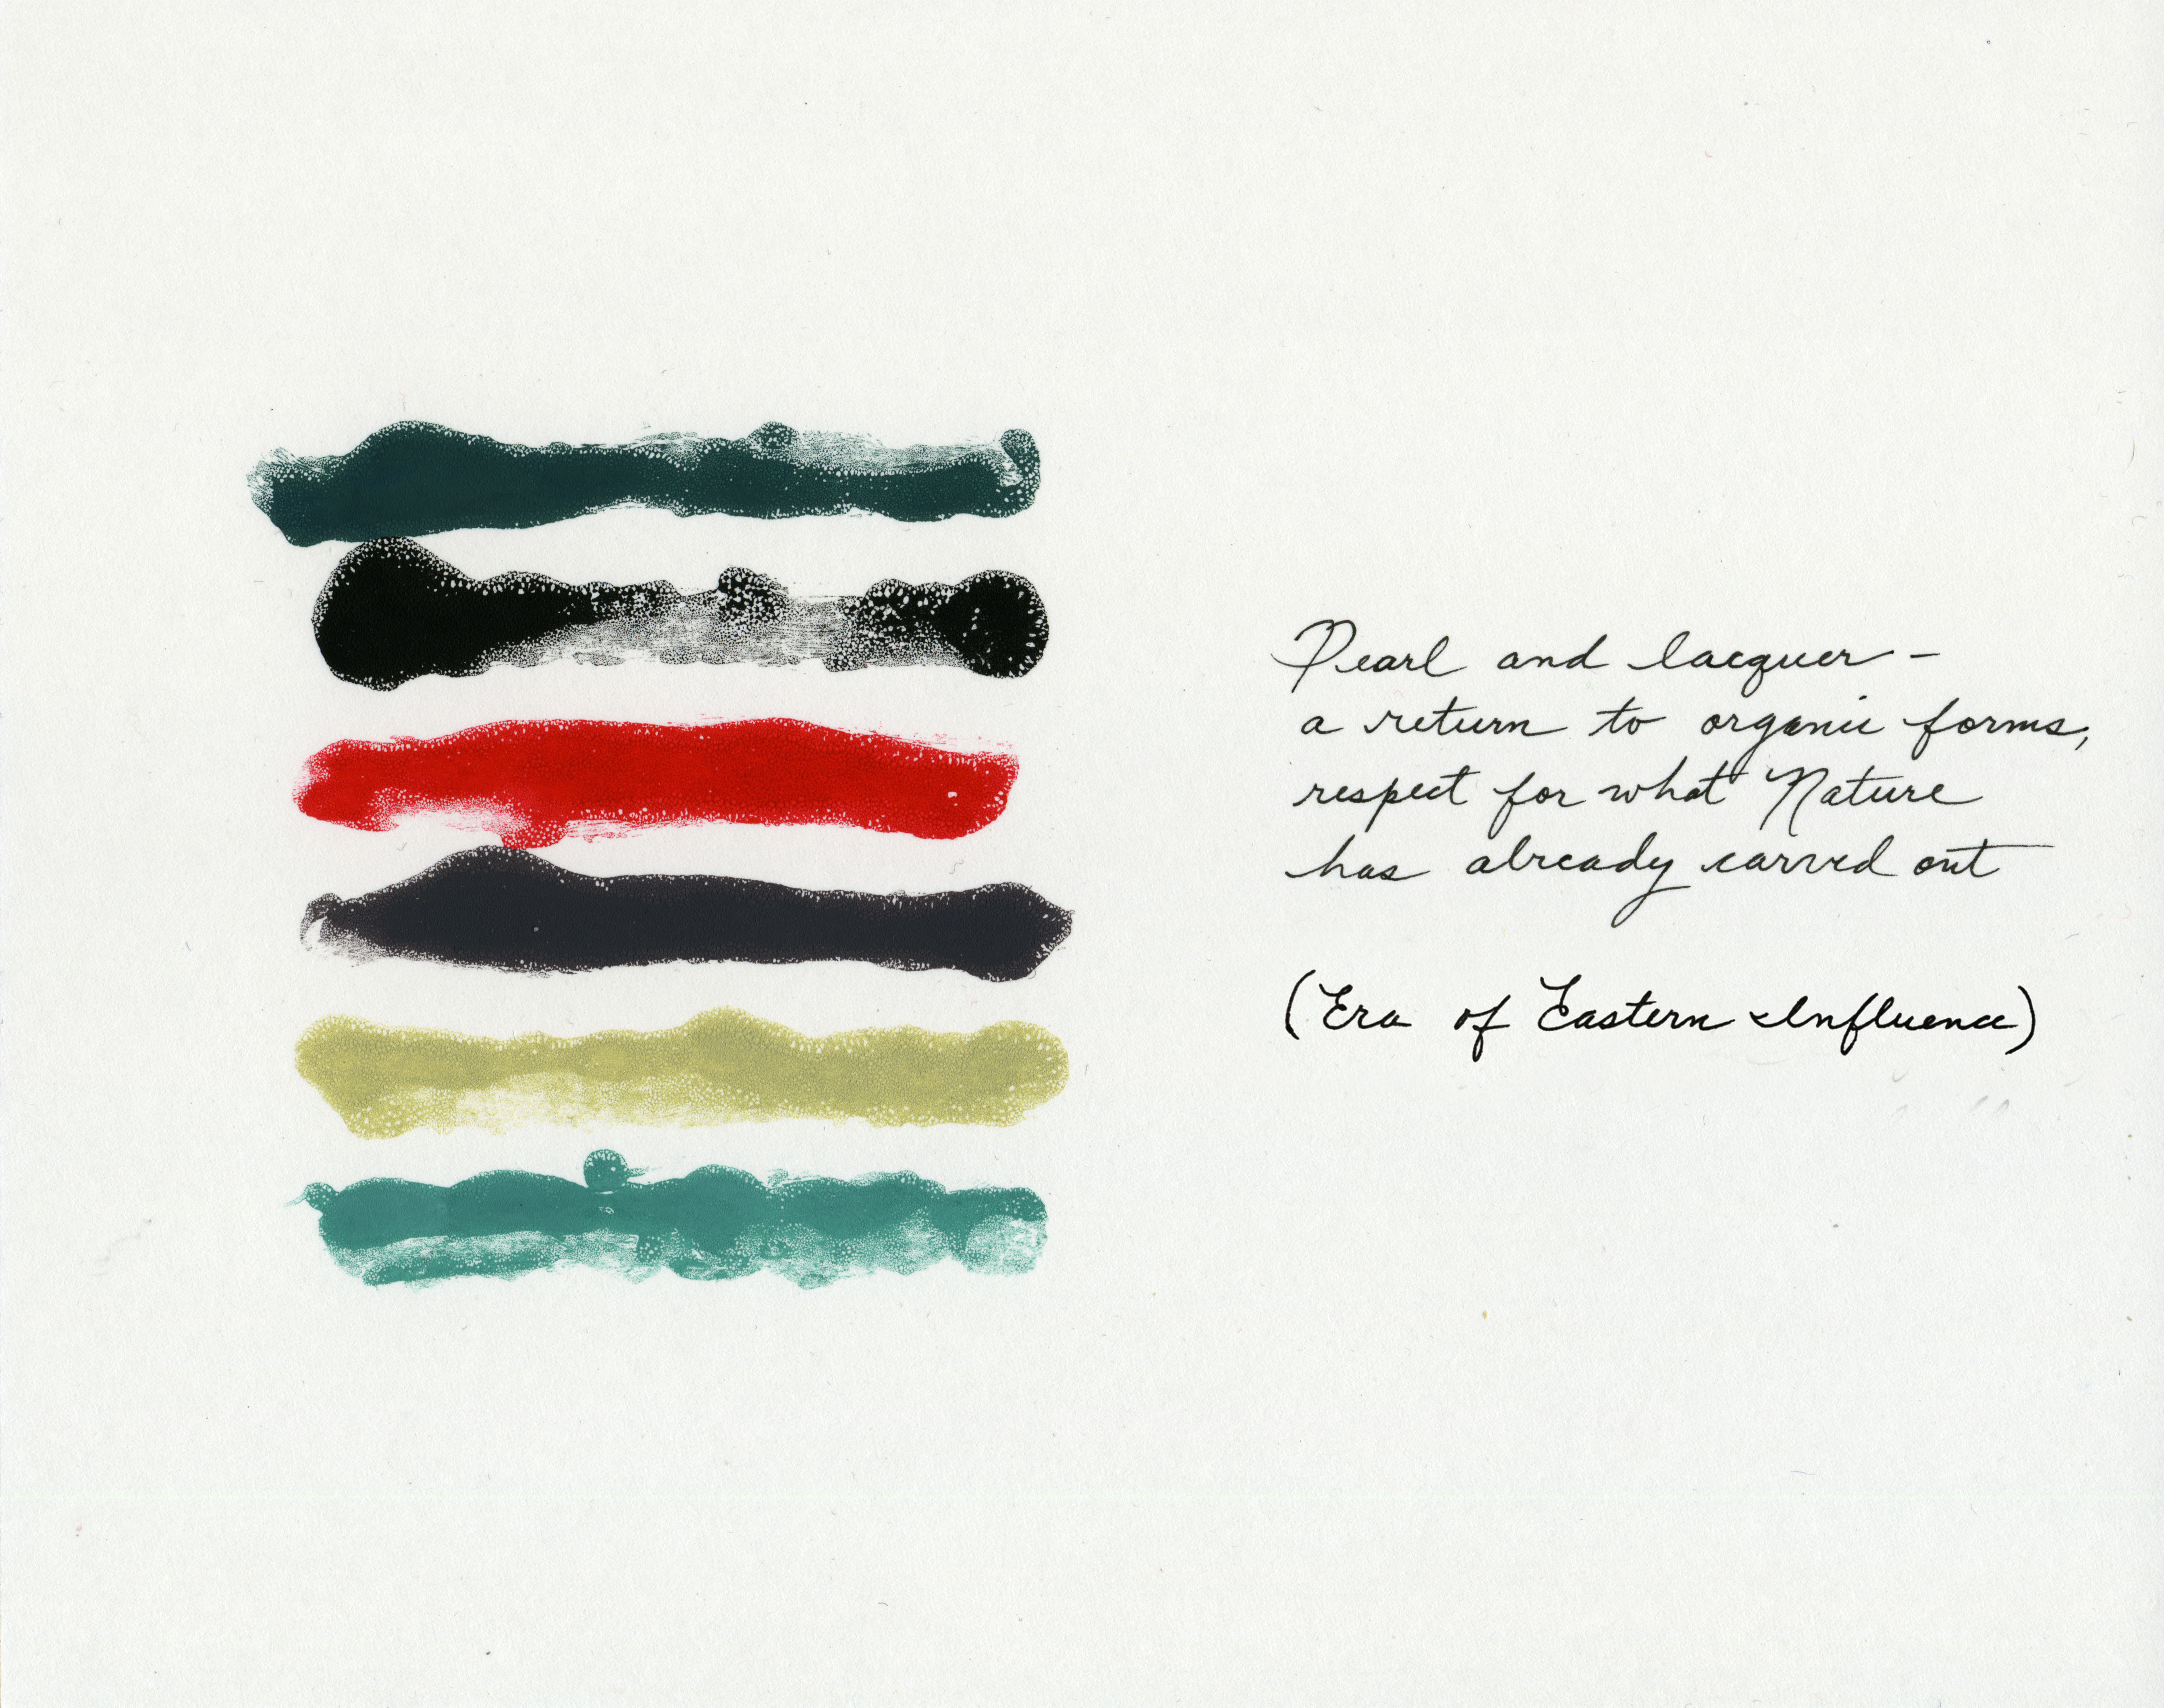 Pearl and lacquer -
a return to organic forms,
respect for what Nature
has already carved out
(Era of Eastern Influence)